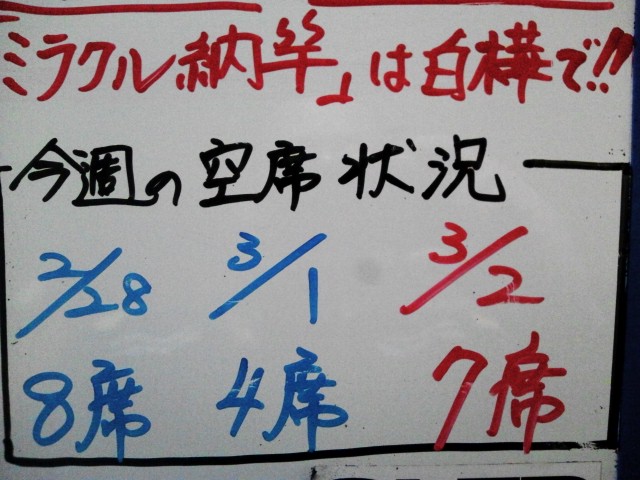 ミラクル納竿」は白樺で!!
今週の空席状況
2/28 3/1 3/2
8席 4席 7席